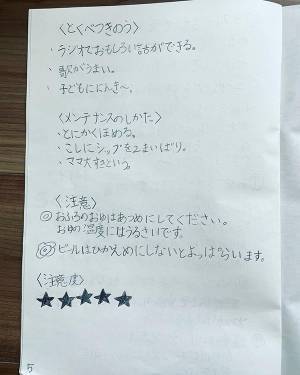 〈とくべつきのう〉
・ラジオでおもしろい話ができる。
・歌がうまい。
・子どもににんき〜。
〈メンテナンスのしかた〉
・とにかくほめる。
・こしにシップを2まいはり。
・ママ大すきという。
〈注意〉
◎おふろのおゆはあつめにしてください。
おゆの温度にはうるさいです。
◎ビールはひかえめにしないとよっぱらいます。
〈注意度〉
★★★★★
5